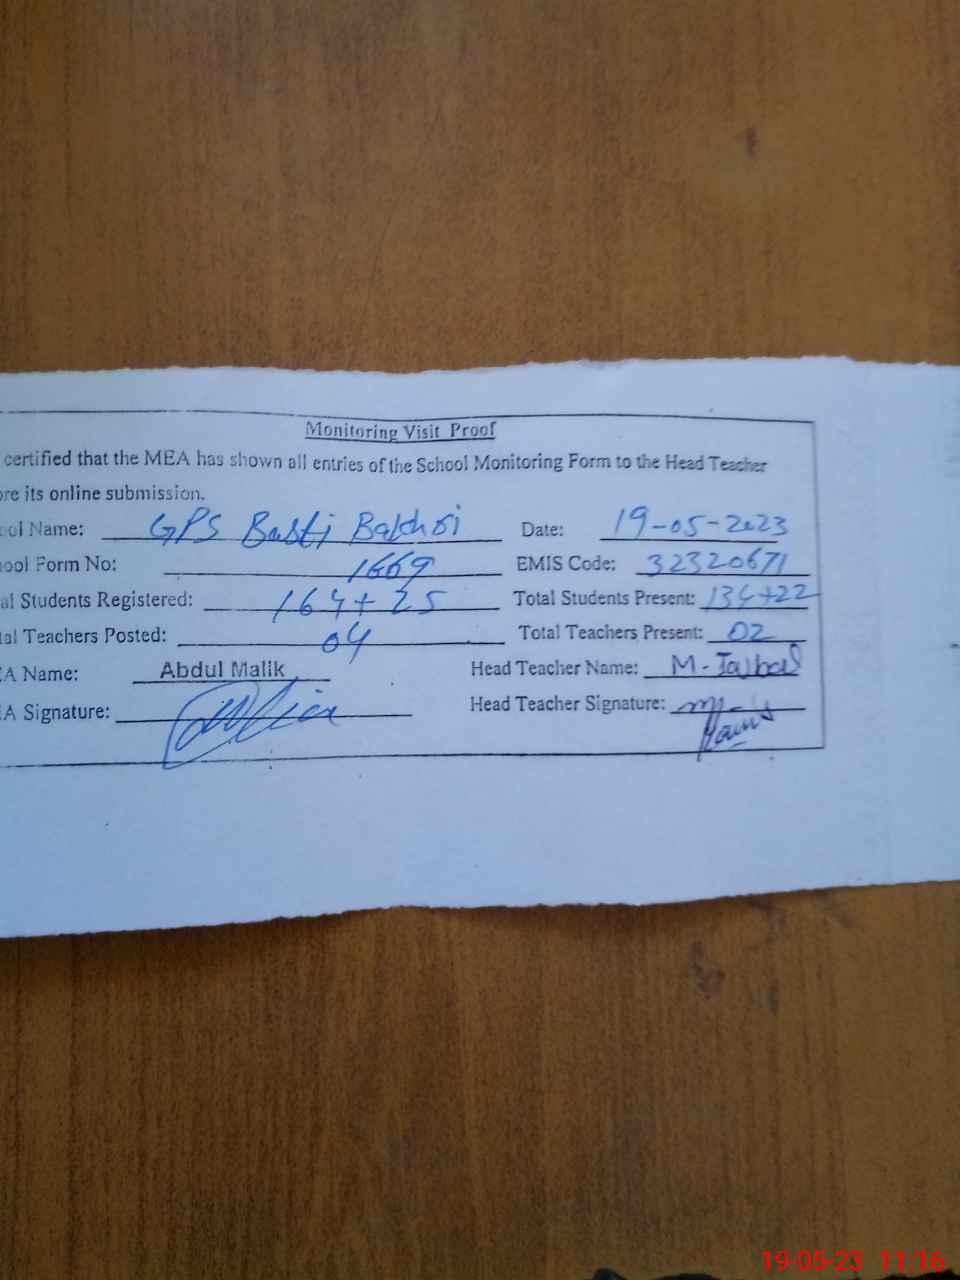 Monitoring Visit Proof
certified that the MEA has shown all entries of the School Monitoring Form to the Head Teacher
ore its online submission.
ool Name: GPS Basti Bakhri Date: 19-05-2023
ool Form No: 1669 EMIS Code: 32320671
al Students Registered: 164+25 Total Students Present: 134+22
al Teachers Posted: 04 Total Teachers Present: 02
EA Name: Abdul Malik Head Teacher Name: M-
EA Signature: Head Teacher Signature:
19-05-23 11:16